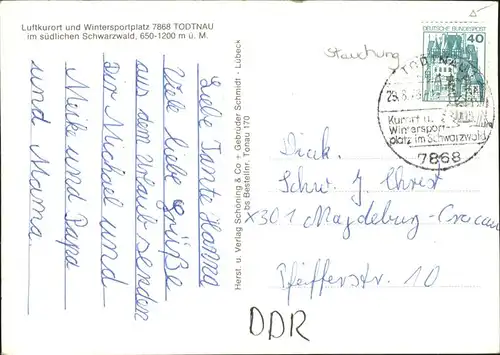 Luftkurort und Wintersportplatz 7868 TODTNAU
im südlichen Schwarzwald, 650-1200 m ü. M.
Liebe Tante Hanna
Viele liebe Grüße
aus dem Urlaub senden
Dir Michael und
Meike und Papa
und Mama.
Herst. u. Verlag Schöning & Co + Gebrüder Schmidt · Lübeck
bs Bestellnr. Tonau 170
Stauchung
DEUTSCHE BUNDESPOST
40
TODTNAU
29.8.
Kurort u.
Wintersport-
platz im Schwarzwald
7868
Diak.
Schw. J. Christ
X301 Magdeburg-Cracau
Pfeifferstr. 10
DDR